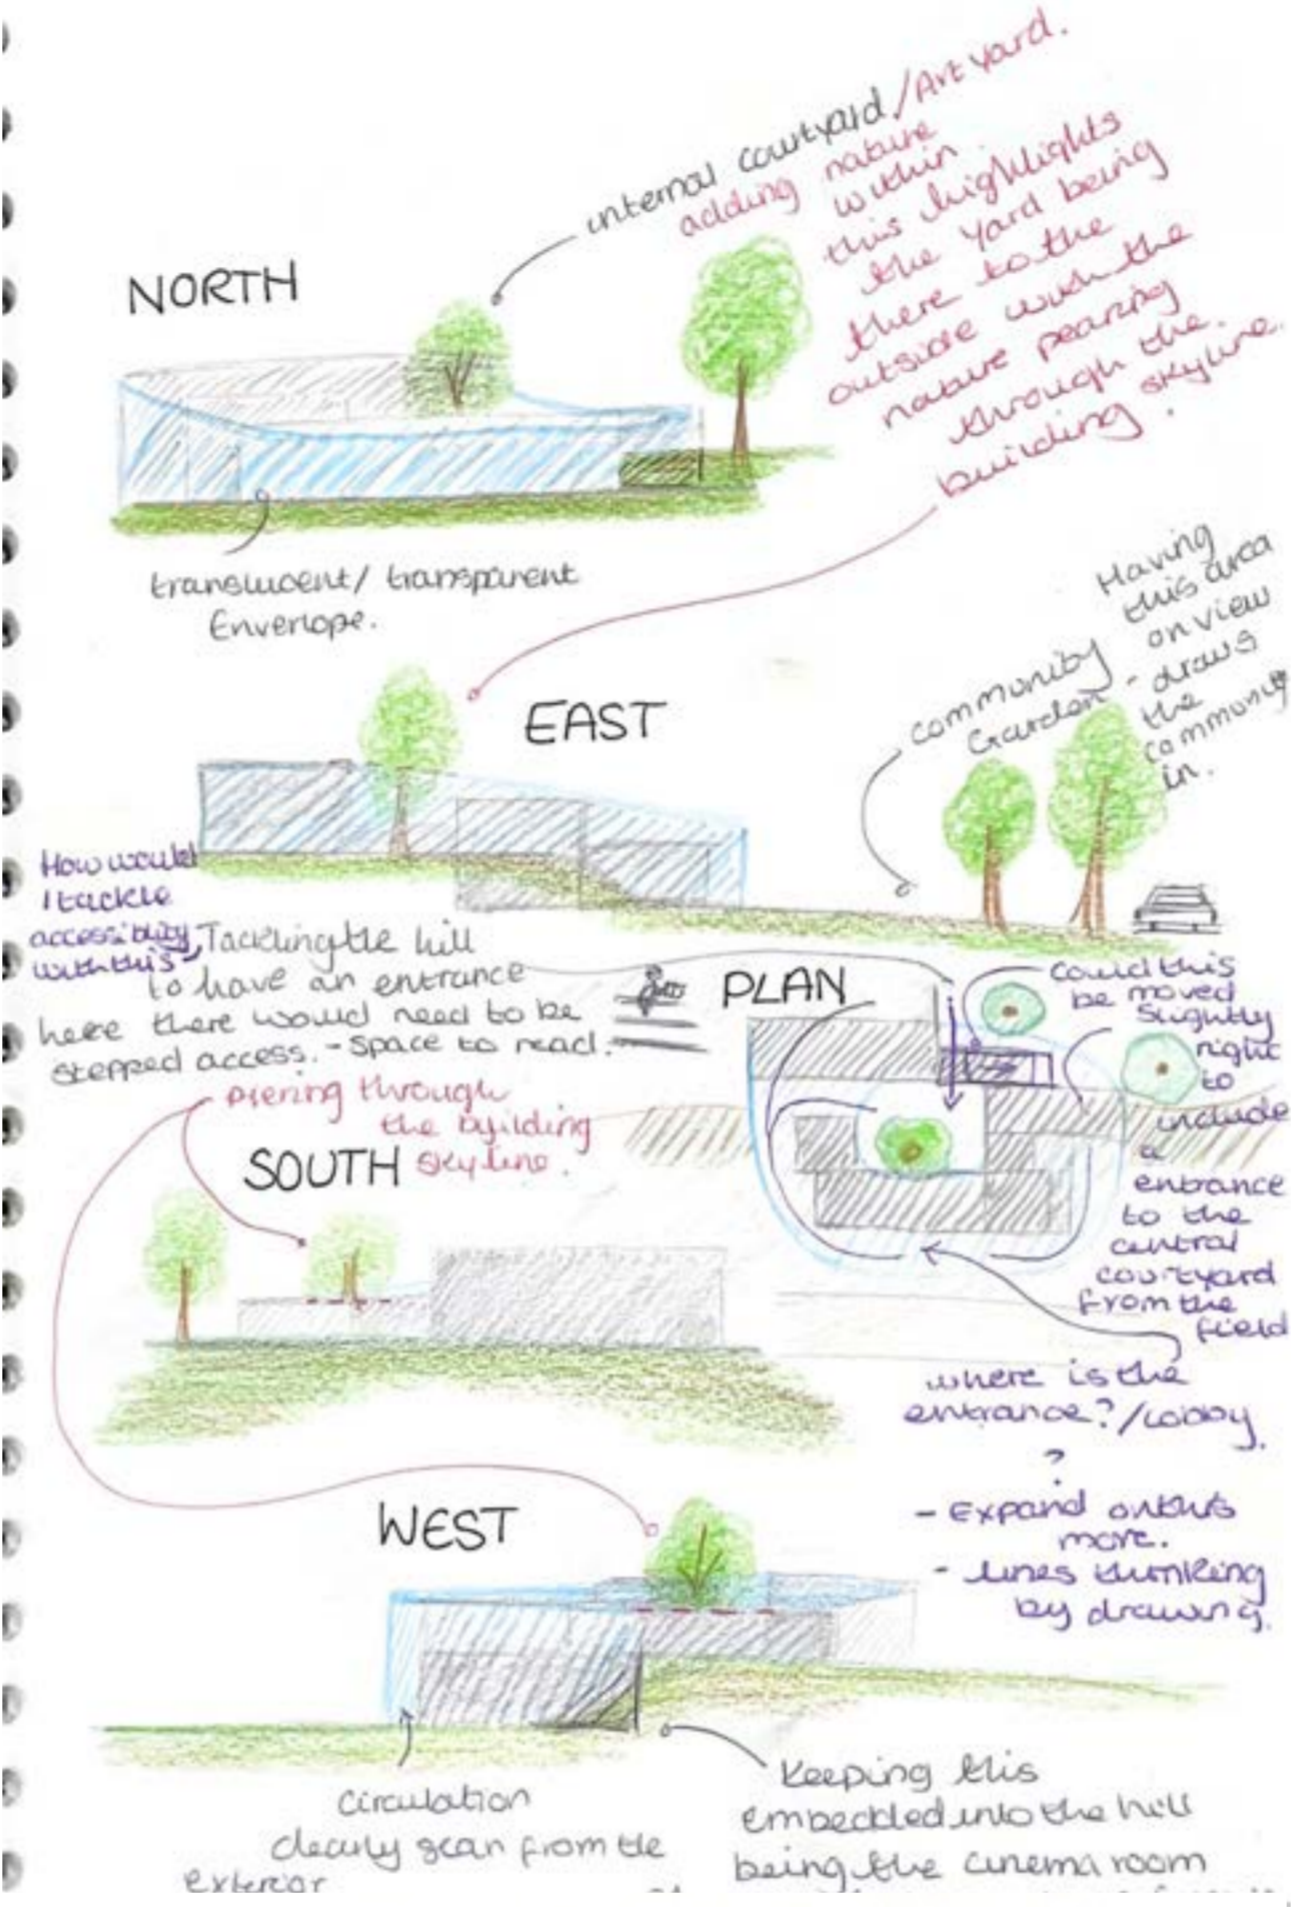 internal courtyard/Art Yard.
adding nature
within
this highlights
the Yard being
there to the
outside with the
nature pearing
through the
building skyline.
NORTH
translucent/ transparent
Envelope.
Having
this area
on view
- draws
the
community
in.
community
Garden
EAST
How would
I tackle
accessiblity
with this
Tackling the hill
to have an entrance
here there would need to be
stepped access. - space to read.
PLAN
could this
be moved
slightly
right
to
include
a
entrance
to the
central
courtyard
from the
field
piering through
the building
skyline.
SOUTH
where is the
entrance?/Lobby.
?
- Expand on this
more.
- lines thinking
by drawing.
WEST
circulation
clearly sean from the
exterior
Keeping this
embedded into the hill
being the cinema room